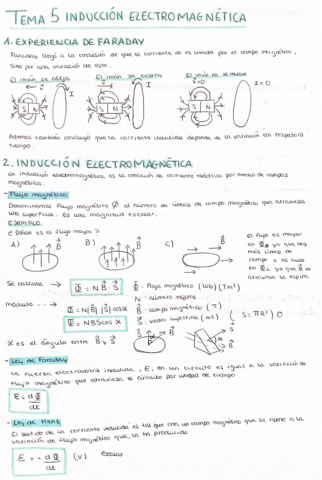 TEMA 5 INDUCCIÓN ELECTROMAGNÉTICA
1. EXPERIENCIA DE FARADAY
Faraday llegó a la conclusión de que la corriente no es creada por el campo magnético,
sino por una variación de este.
El imán se aleja El imán se acerca El imán no se mueve
I I v=0 I=0
S N S N S N
Además también concluyó que la corriente inducida depende de la variación con respecto al
tiempo.
2. INDUCCIÓN ELECTROMAGNÉTICA
La inducción electromagnética es la creación de corriente eléctrica por medio de campos
magnéticos.
- Flujo magnético
Denominamos flujo magnético Φ al número de líneas de campo magnético que atraviesa
una superficie. Es una magnitud escalar.
EJEMPLO:
¿Dónde es el flujo mayor?
A) B) C)
El flujo es mayor
en Φ_B ya que hay
más líneas de
campo y es nulo
en Φ_C ya que B⃗ no
atraviesa la espira
Se calcula → Φ = N B⃗ · S⃗
módulo → Φ = N|B⃗| |S⃗| cos α
Φ = NBS cos α
Φ: flujo magnético (Wb) (Tm²)
N: número espiras
B⃗: campo magnético (T)
S⃗: vector superficie (m²) (S = πR²)
α es el ángulo entre B⃗ y S⃗
- Ley de Faraday
La fuerza electromotriz inducida, ε, en un circuito es igual a la variación de
flujo magnético que atraviesa el circuito por unidad de tiempo.
ε = dΦ/dt
- Ley de Henz
El sentido de la corriente inducida es tal que crea un campo magnético que se opone a la
variación de flujo magnético que la ha producido
ε = - dΦ/dt (V) Escalar